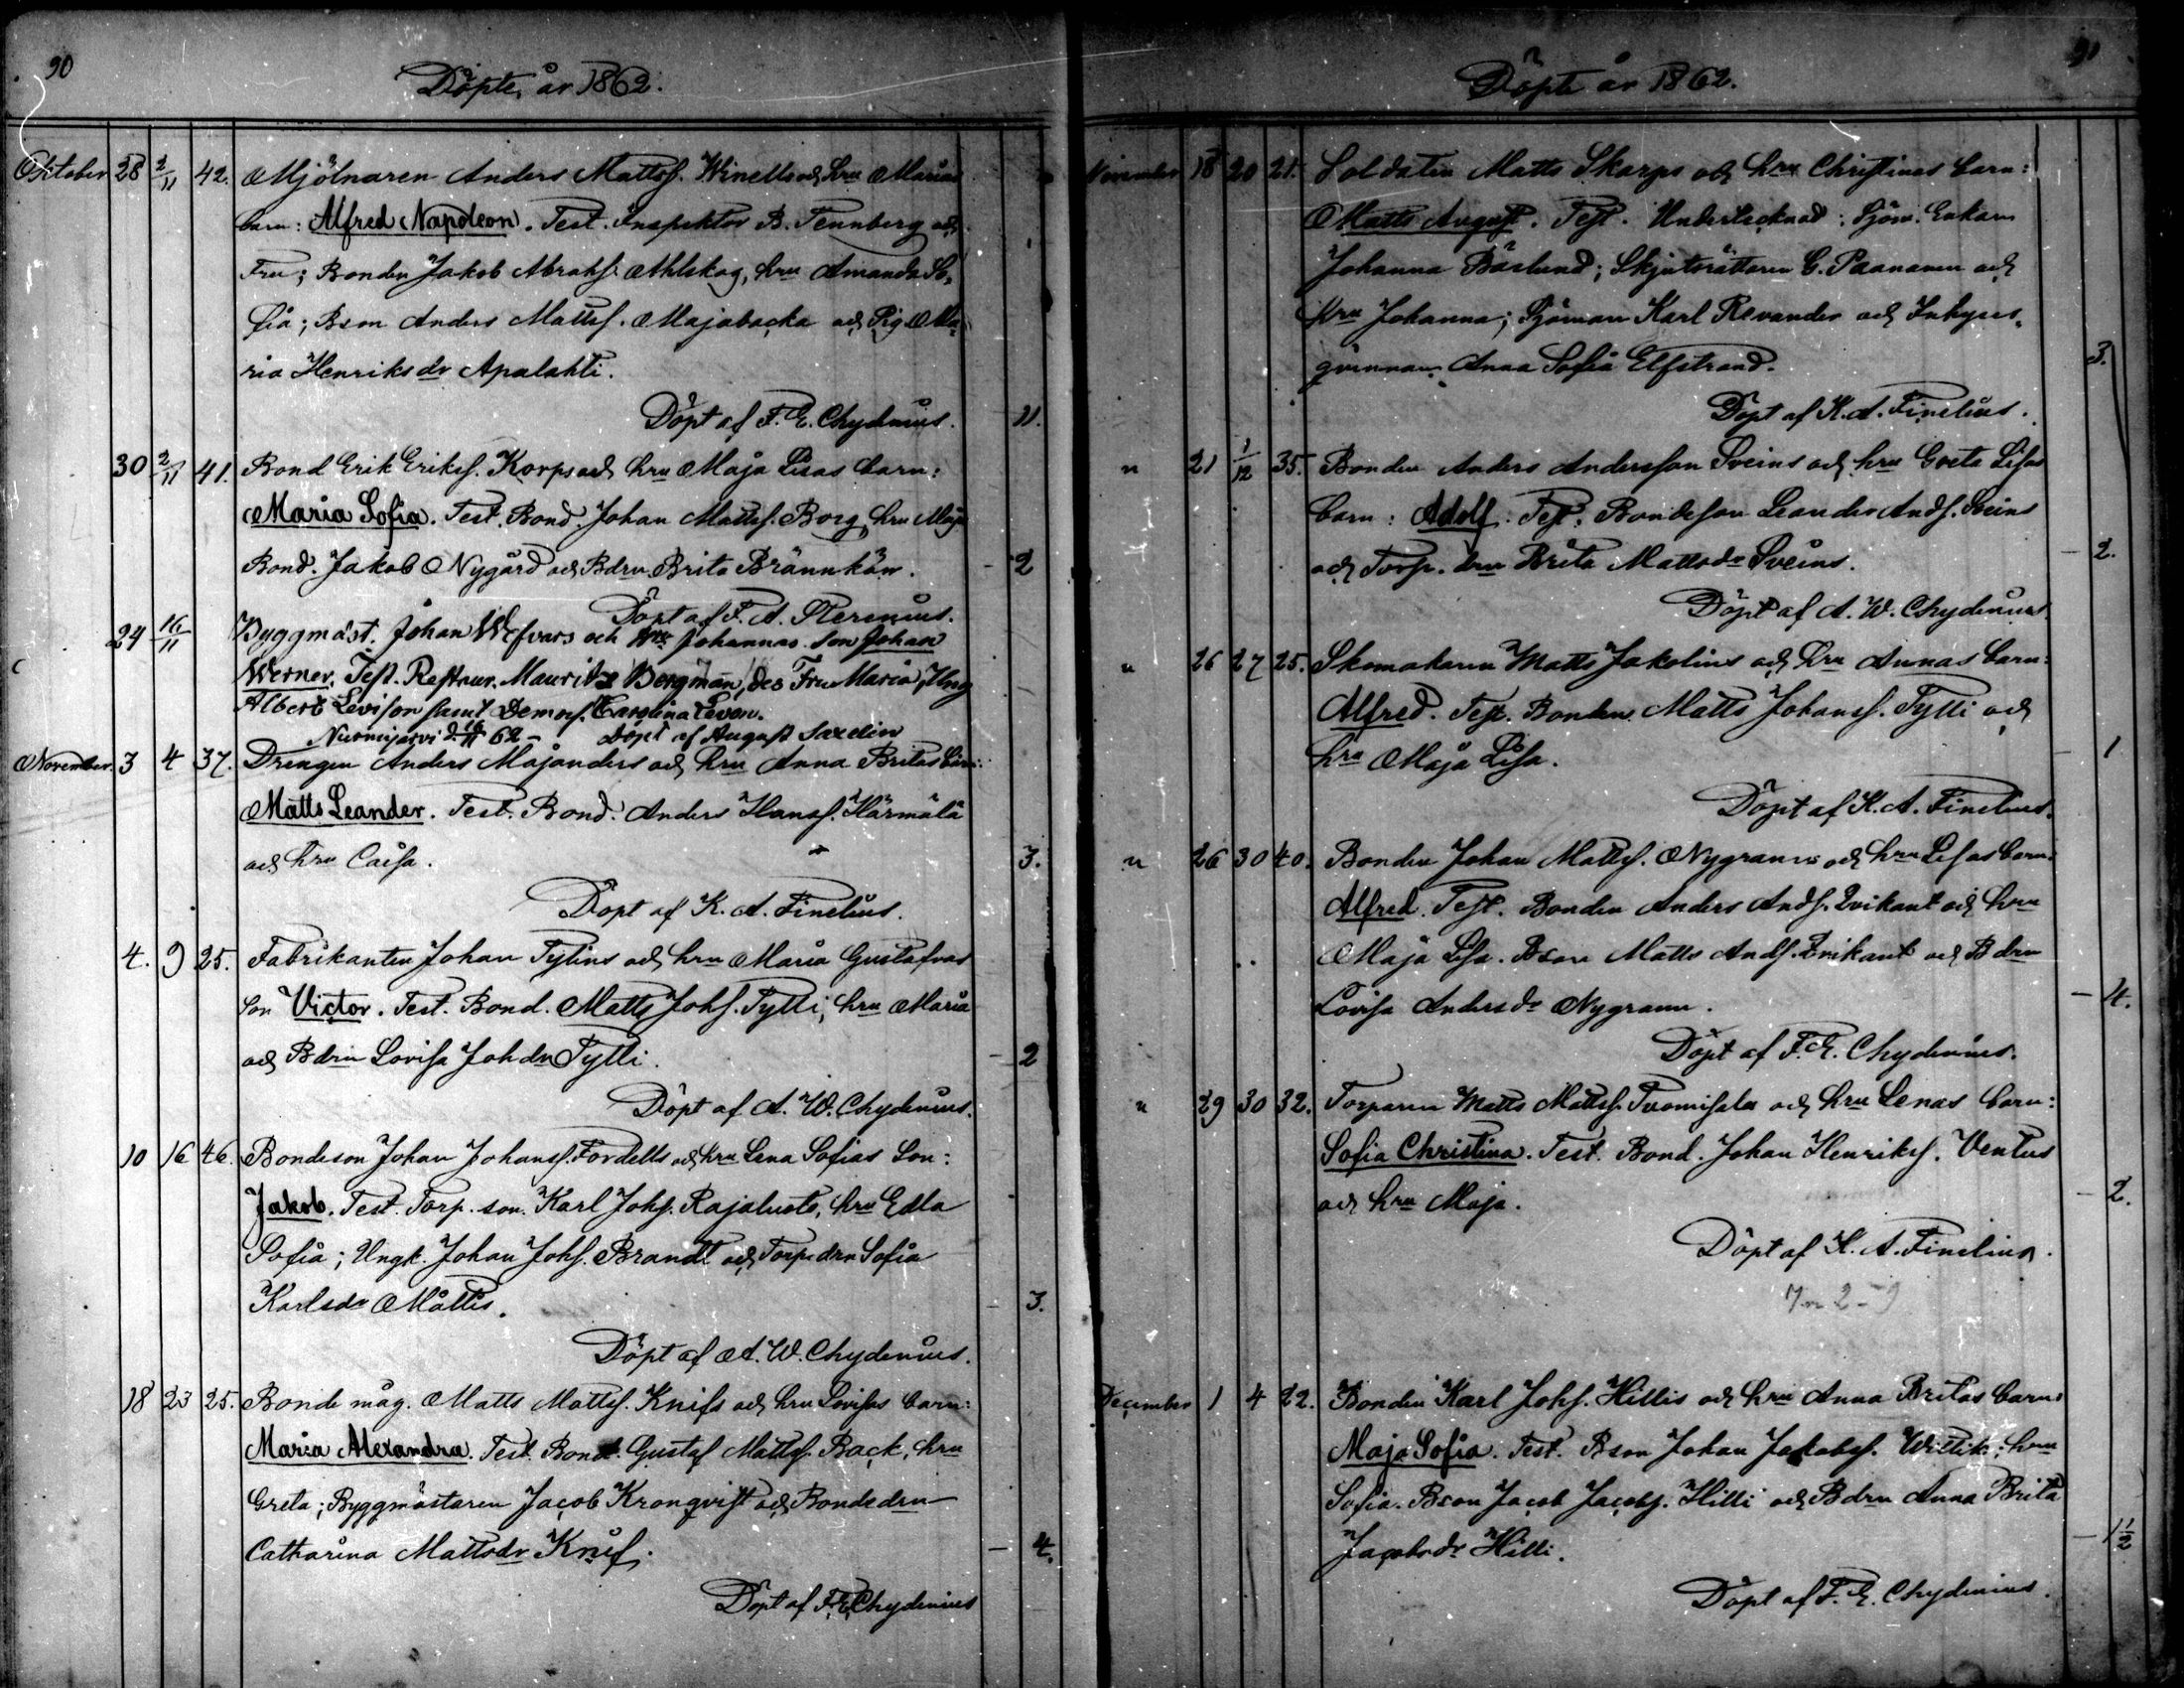 90
Döpte, år 1862.
Oktober 28 2/11 42. Mjölnaren Anders Mattss. Winells och hru Marias
barn: Alfred Napoleon. Test. Inspektor B. Tennberg och
Fru; Bonden Jakob Abrahs. Ahlskog, hru Amanda So-
fia; Bson Anders Mattss. Majabacka och Pig. Ma-
ria Henriksdr Apalahti.
11.
Döpt af F. E. Chydenius.
30 2/11 41. Bond Erik Erikss. Korps och hru Maja Lisas barn:
Maria Sofia. Test. Bond. Johan Mattss. Borg, hru Maja
Bond. Jakob Nygård och Bdrn Brita Brännkärr.
- 2
Döpt af F. A.
24 16/11 Byggmäst. Johan och Hru Johannas son Johan
Werner. Test. Restaur. Mauritz Bergman, des Fru Maria, Ung
Albert Levison samt Demois. Carolina Leven.
Nurmijärvi d. 16/11 62 - Döpt af August Saxelin
November. 3 4 37. Drengen Anders Majanders och hru Anna Britas barn:
Matts Leander. Test. Bond. Anders Hanss. Härmälä
och hru Caisa.
3.
Döpt af K. A. Finelius.
4. 9 25. Fabrikanten Johan Tylins och hru Maria Gustafvas
son Victor. Test. Bond. Matts Johs. Tylli, hru Maria
och Bdrn Lovisa Johdr Tylli.
- 2
Döpt af A. W. Chydenius.
10 16 46. Bondeson Johan Johanss. Fordells och hru Lena Sofias Son:
Jakob. Test. Torp. son. Karl Johs. Rajaluoto, hru Edla
Sofia; Ungk. Johan Johs. Brandt och Torpedrn Sofia
Karlsdr Mattis.
- 3.
Döpt af A. W. Chydenius.
18 23 25. Bonde måg. Matts Mattss. Knifs och hru Lovisas barn:
Maria Alexandra. Test. Bond. Gustaf Mattss. Back, hru
Greta; Byggmästaren Jacob Kronqvist och Bondedrn
Catharina Mattsdr Knif.
- 4.
Döpt af F. E. Chydenius
91
Döpte år 1862.
November 18 20 21. Soldaten Matts Skarps och hru Christinas barn:
Matts August. Test. Undertecknad; Sjöm. Enkan
Johanna Båslund; Skjutsrättaren C. Paananen och
hru Johanna; Sjöman Karl Revander och Inhyses-
qvinnan Anna Sofia Elfstrand.
3.
Döpt af K. A. Finelius.
" 21 1/12 35. Bonden Anders Andersson Sveins och hru Greta Lisas
barn: Adolf. Test. Bondeson Leander Ands. Sveins
och Torp. drn Brita Mattsdr Sveins.
- 2.
Döpt af A. W. Chydenius.
" 26 27 25. Skomakaren Matts Jakolins och hru Annas barn:
Alfred. Test. Bonden Matts Johanss. Tylli och
hru Maja Lisa.
- 1
Döpt af K. A. Finelius.
" 26 30 40. Bonden Johan Mattss. Nygranns och hru Lisas barn:
Alfred. Test. Bonden Anders Ands. Qvikant och hru
Maja Lisa. Bson Matts Ands. Qvikant och Bdrn
Lovisa Andersdr Nygrann.
- 4.
Döpt af F. E. Chydenius.
" 29 30 32. Torparen Matts Mattss. Tuomisala och hru Lenas barn:
Sofia Christina. Test. Bond. Johan Henrikss. Ventus
och hru Maja.
- 2.
Döpt af K. A. Finelius.
December 1 4 22. Bonden Karl Johs. Hillis och hru Anna Britas barn:
Maja Sofia. Test. Bson Johan Jakobss. Wittik; hru
Sofia. Bson Jacob Jacobs. Hilli och Bdrn Anna Brita
Jacobsdr Hilli.
- 1 1/2
Döpt af F. E. Chydenius.